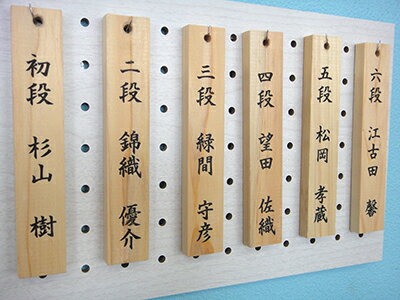 初段 杉山 樹
二段 錦織 優介
三段 緑間 守彦
四段 望田 佐織
五段 松岡 孝蔵
六段 江古田 馨